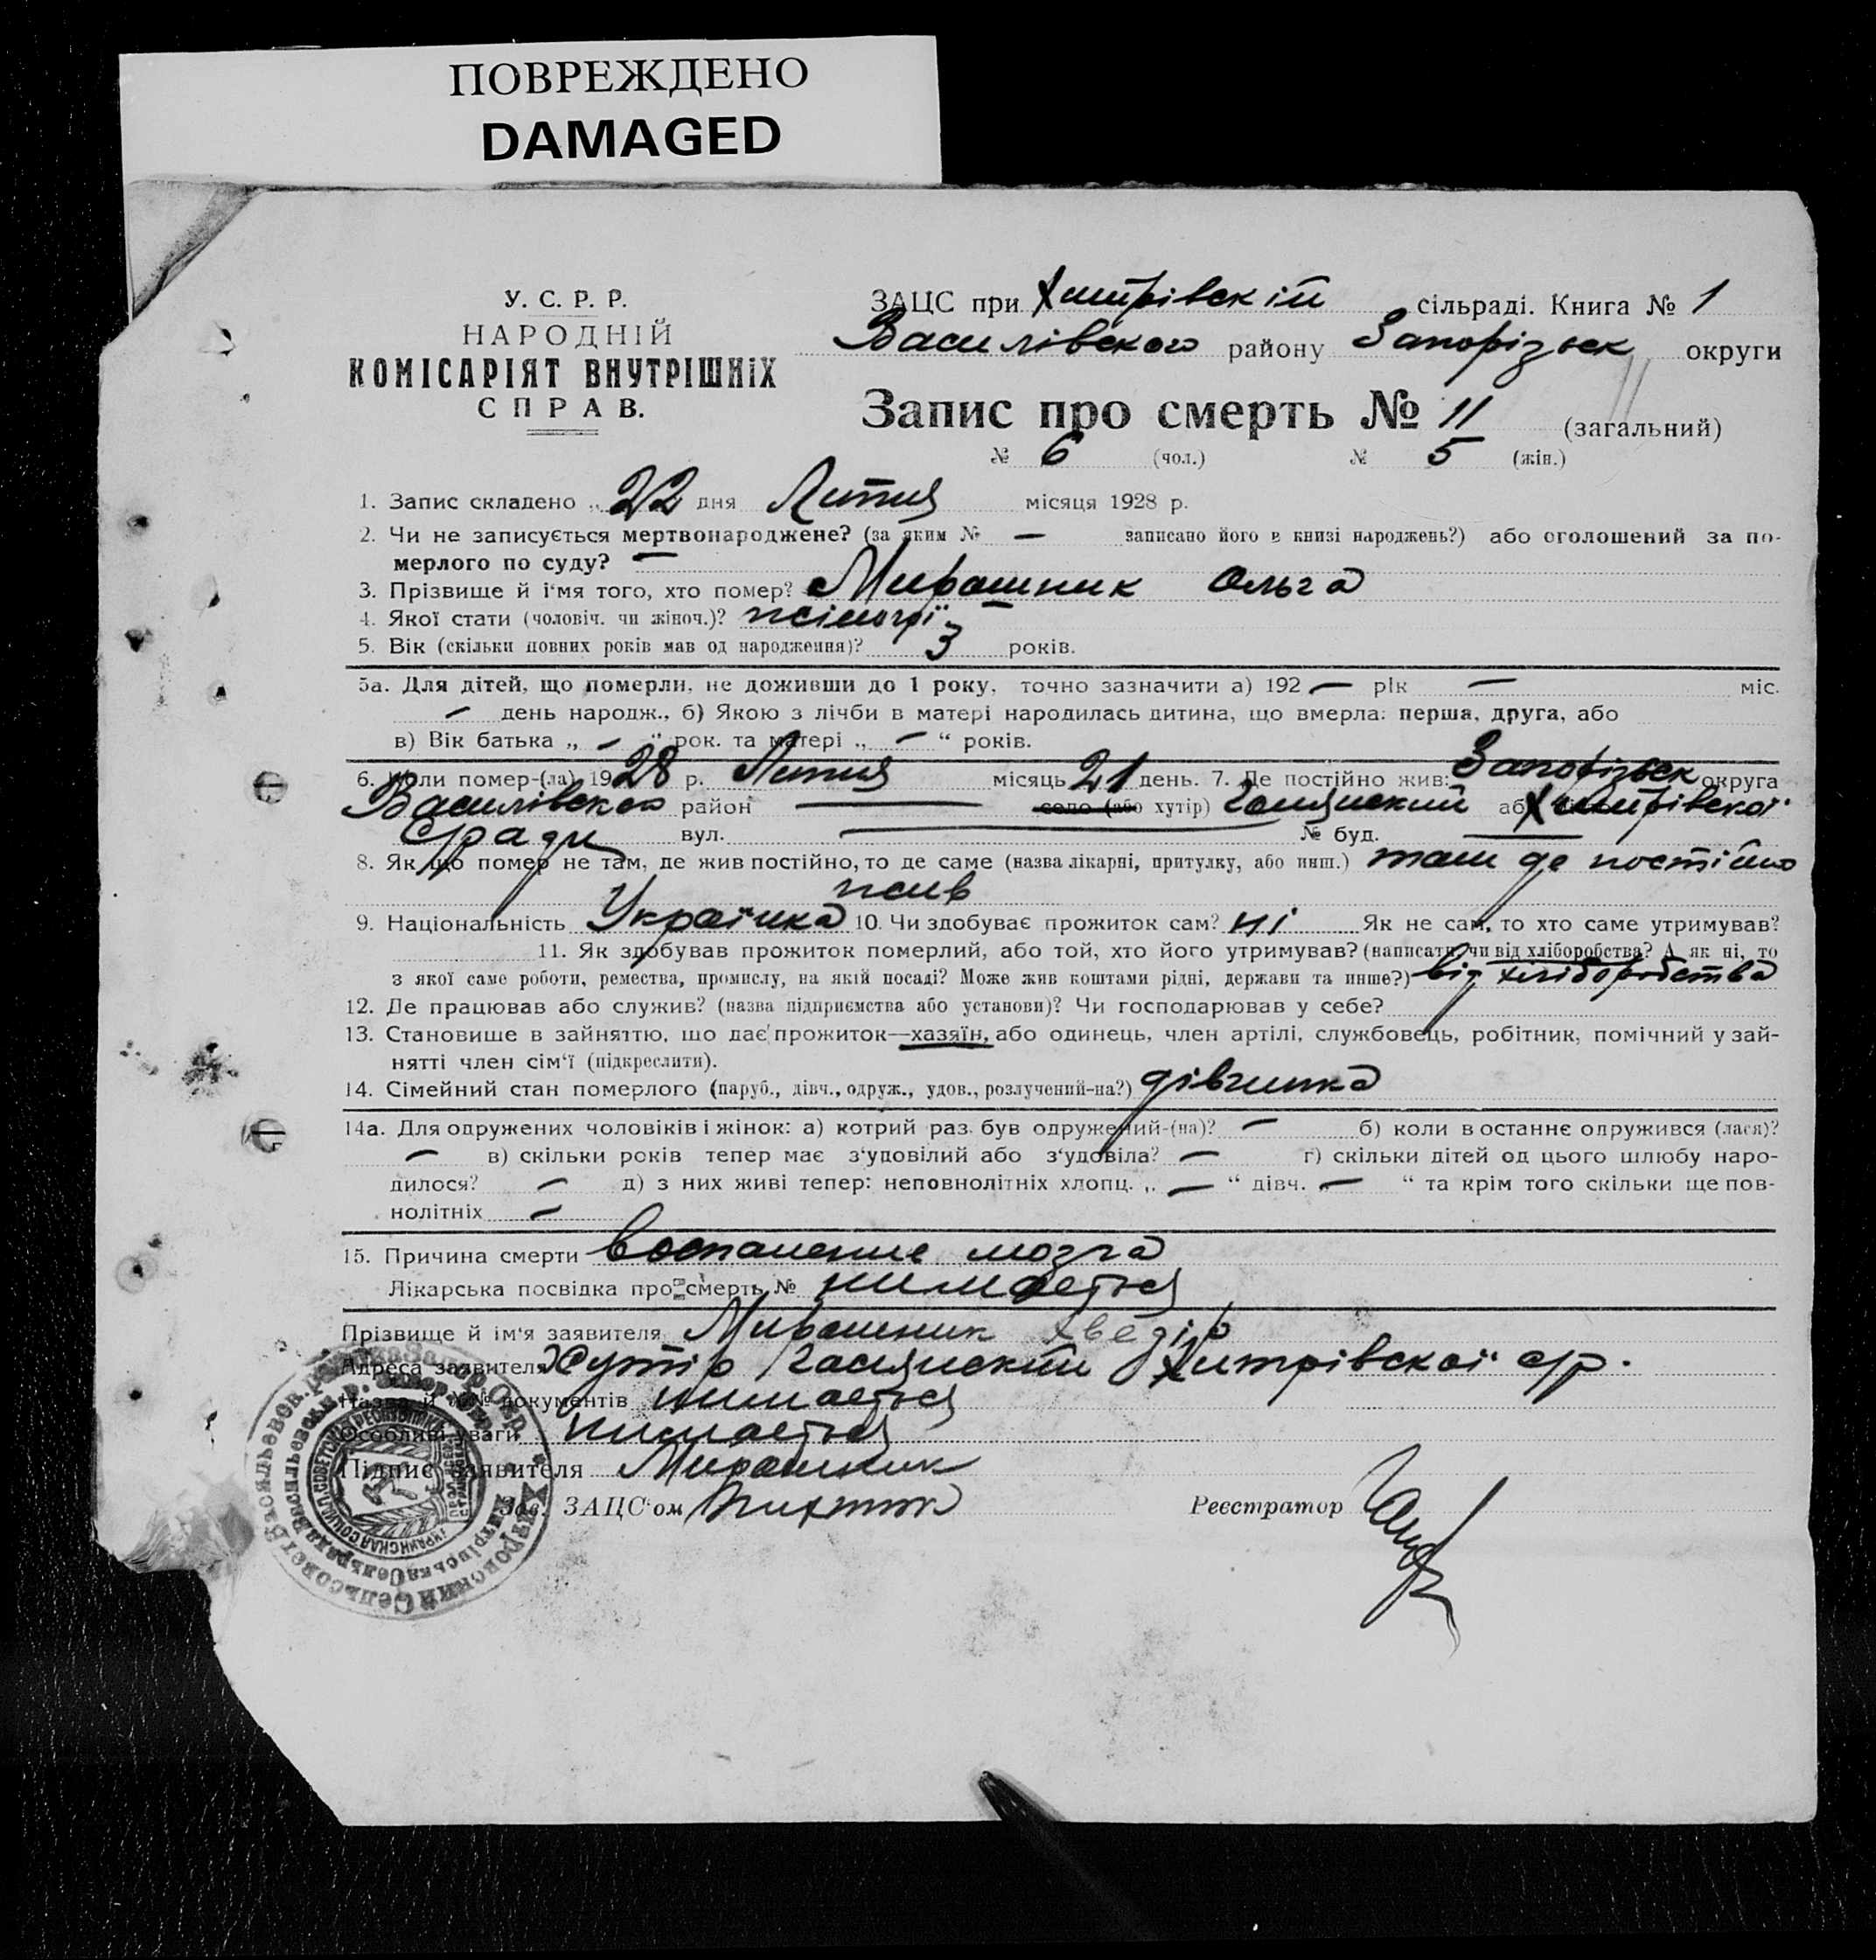 ПОВРЕЖДЕНО
DAMAGED
У. С. Р. Р.
НАРОДНІЙ
КОМІСАРІЯТ ВНУТРІШНІХ
СПРАВ.
ЗАЦС при Хитрівскій сільраді. Книга № 1
Василівского району Запорізьск округи
Запис про смерть № 11 (загальний)
№ 6 (чол.) № 5 (жін.)
1. Запис складено „ 22 дня Липня місяця 1928 р.
2. Чи не записується мертвонароджене? (за яким № — записано його в книзі народжень?) або оголошений за по-
мерлого по суду? —
3. Прізвище й ім'я того, хто помер? Мирошник Ольга
4. Якої стати (чоловіч. чи жіноч.)? жіночої
5. Вік (скільки повних років мав од народження)? 3 років.
5а. Для дітей, що померли, не доживши до 1 року, точно зазначити а) 192 — рік — міс.
— день народж., б) Якою з лічби в матері народилась дитина, що вмерла: перша, друга, або
в) Вік батька „ — “ рок. та матері „ — “ років.
6. Коли помер-(ла) 1928 р. Липня місяць 21 день. 7. Де постійно жив: Запорізьск округа
Василівского район — село (або хутір) або Хитрівскої
с/ради вул. — № буд. —
8. Як що помер не там, де жив постійно, то де саме (назва лікарні, притулку, або инш.) там де постійно
жив
9. Національність Українка 10. Чи здобуває прожиток сам? ні Як не сам, то хто саме утримував?
11. Як здобував прожиток померлий, або той, хто його утримував? (написати, чи від хліборобства? А як ні, то
з якої саме роботи, ремества, промислу, на якій посаді? Може жив коштами рідні, держави та инше?) від хліборобства
12. Де працював або служив? (назва підприємства або установи)? Чи господарював у себе?
13. Становище в зайняттю, що дає прожиток—хазяїн, або одинець, член артілі, службовець, робітник, помічний у зай-
нятті член сім'ї (підкреслити).
14. Сімейний стан померлого (паруб., дівч., одруж., удов., розлучений-на?) дівчинка
14а. Для одружених чоловіків і жінок: а) котрий раз був одружений-(на)? — б) коли в останнє одружився (лася)?
— в) скільки років тепер має з'удовілий або з'удовіла? — г) скільки дітей од цього шлюбу наро-
дилося? — д) з них живі тепер: неповнолітніх хлопц. „ — “ дівч. „ — “ та крім того скільки ще пов-
нолітніх —
15. Причина смерти воспаление мозга
Лікарська посвідка про смерть № нимаеться
Прізвище й ім'я заявителя Мирошник Хведір
Адреса заявителя Хутір Хитрівскої с/р.
Назва й №№ документів нимаеться
Особливі уваги нимаеться
Підпис заявителя Мирошник
Зав. ЗАЦС'ом
Реєстратор